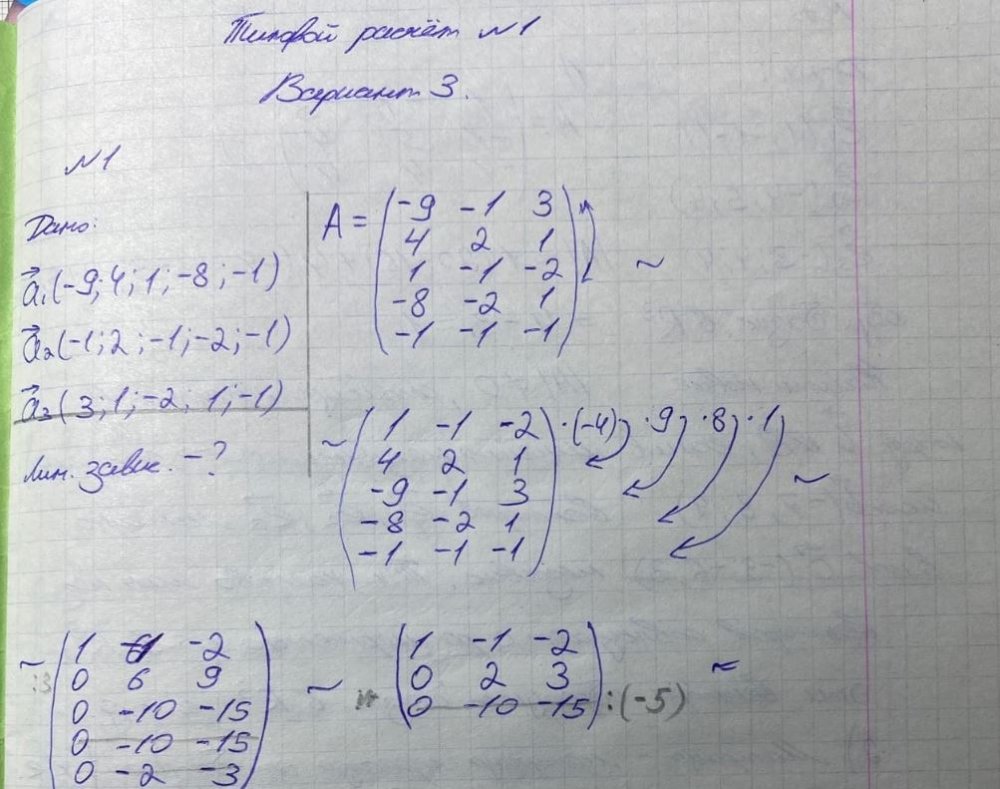 Типовой расчёт №1
Вариант 3.
№1
Дано:
a₁(-9; 4; 1; -8; -1)
a₂(-1; 2; -1; -2; -1)
a₃(3; 1; -2; 1; -1)
Лин. завис. - ?
A = (-9 -1 3
4 2 1
1 -1 -2
-8 -2 1
-1 -1 -1) ~
~ (1 -1 -2
4 2 1
-9 -1 3
-8 -2 1
-1 -1 -1) ·(-4) ·9 ·8 ·1 ~
~ (1 -1 -2
:3 0 6 9
0 -10 -15
0 -10 -15
0 -2 -3)
~ (1 -1 -2
0 2 3
0 -10 -15) :(-5) ~